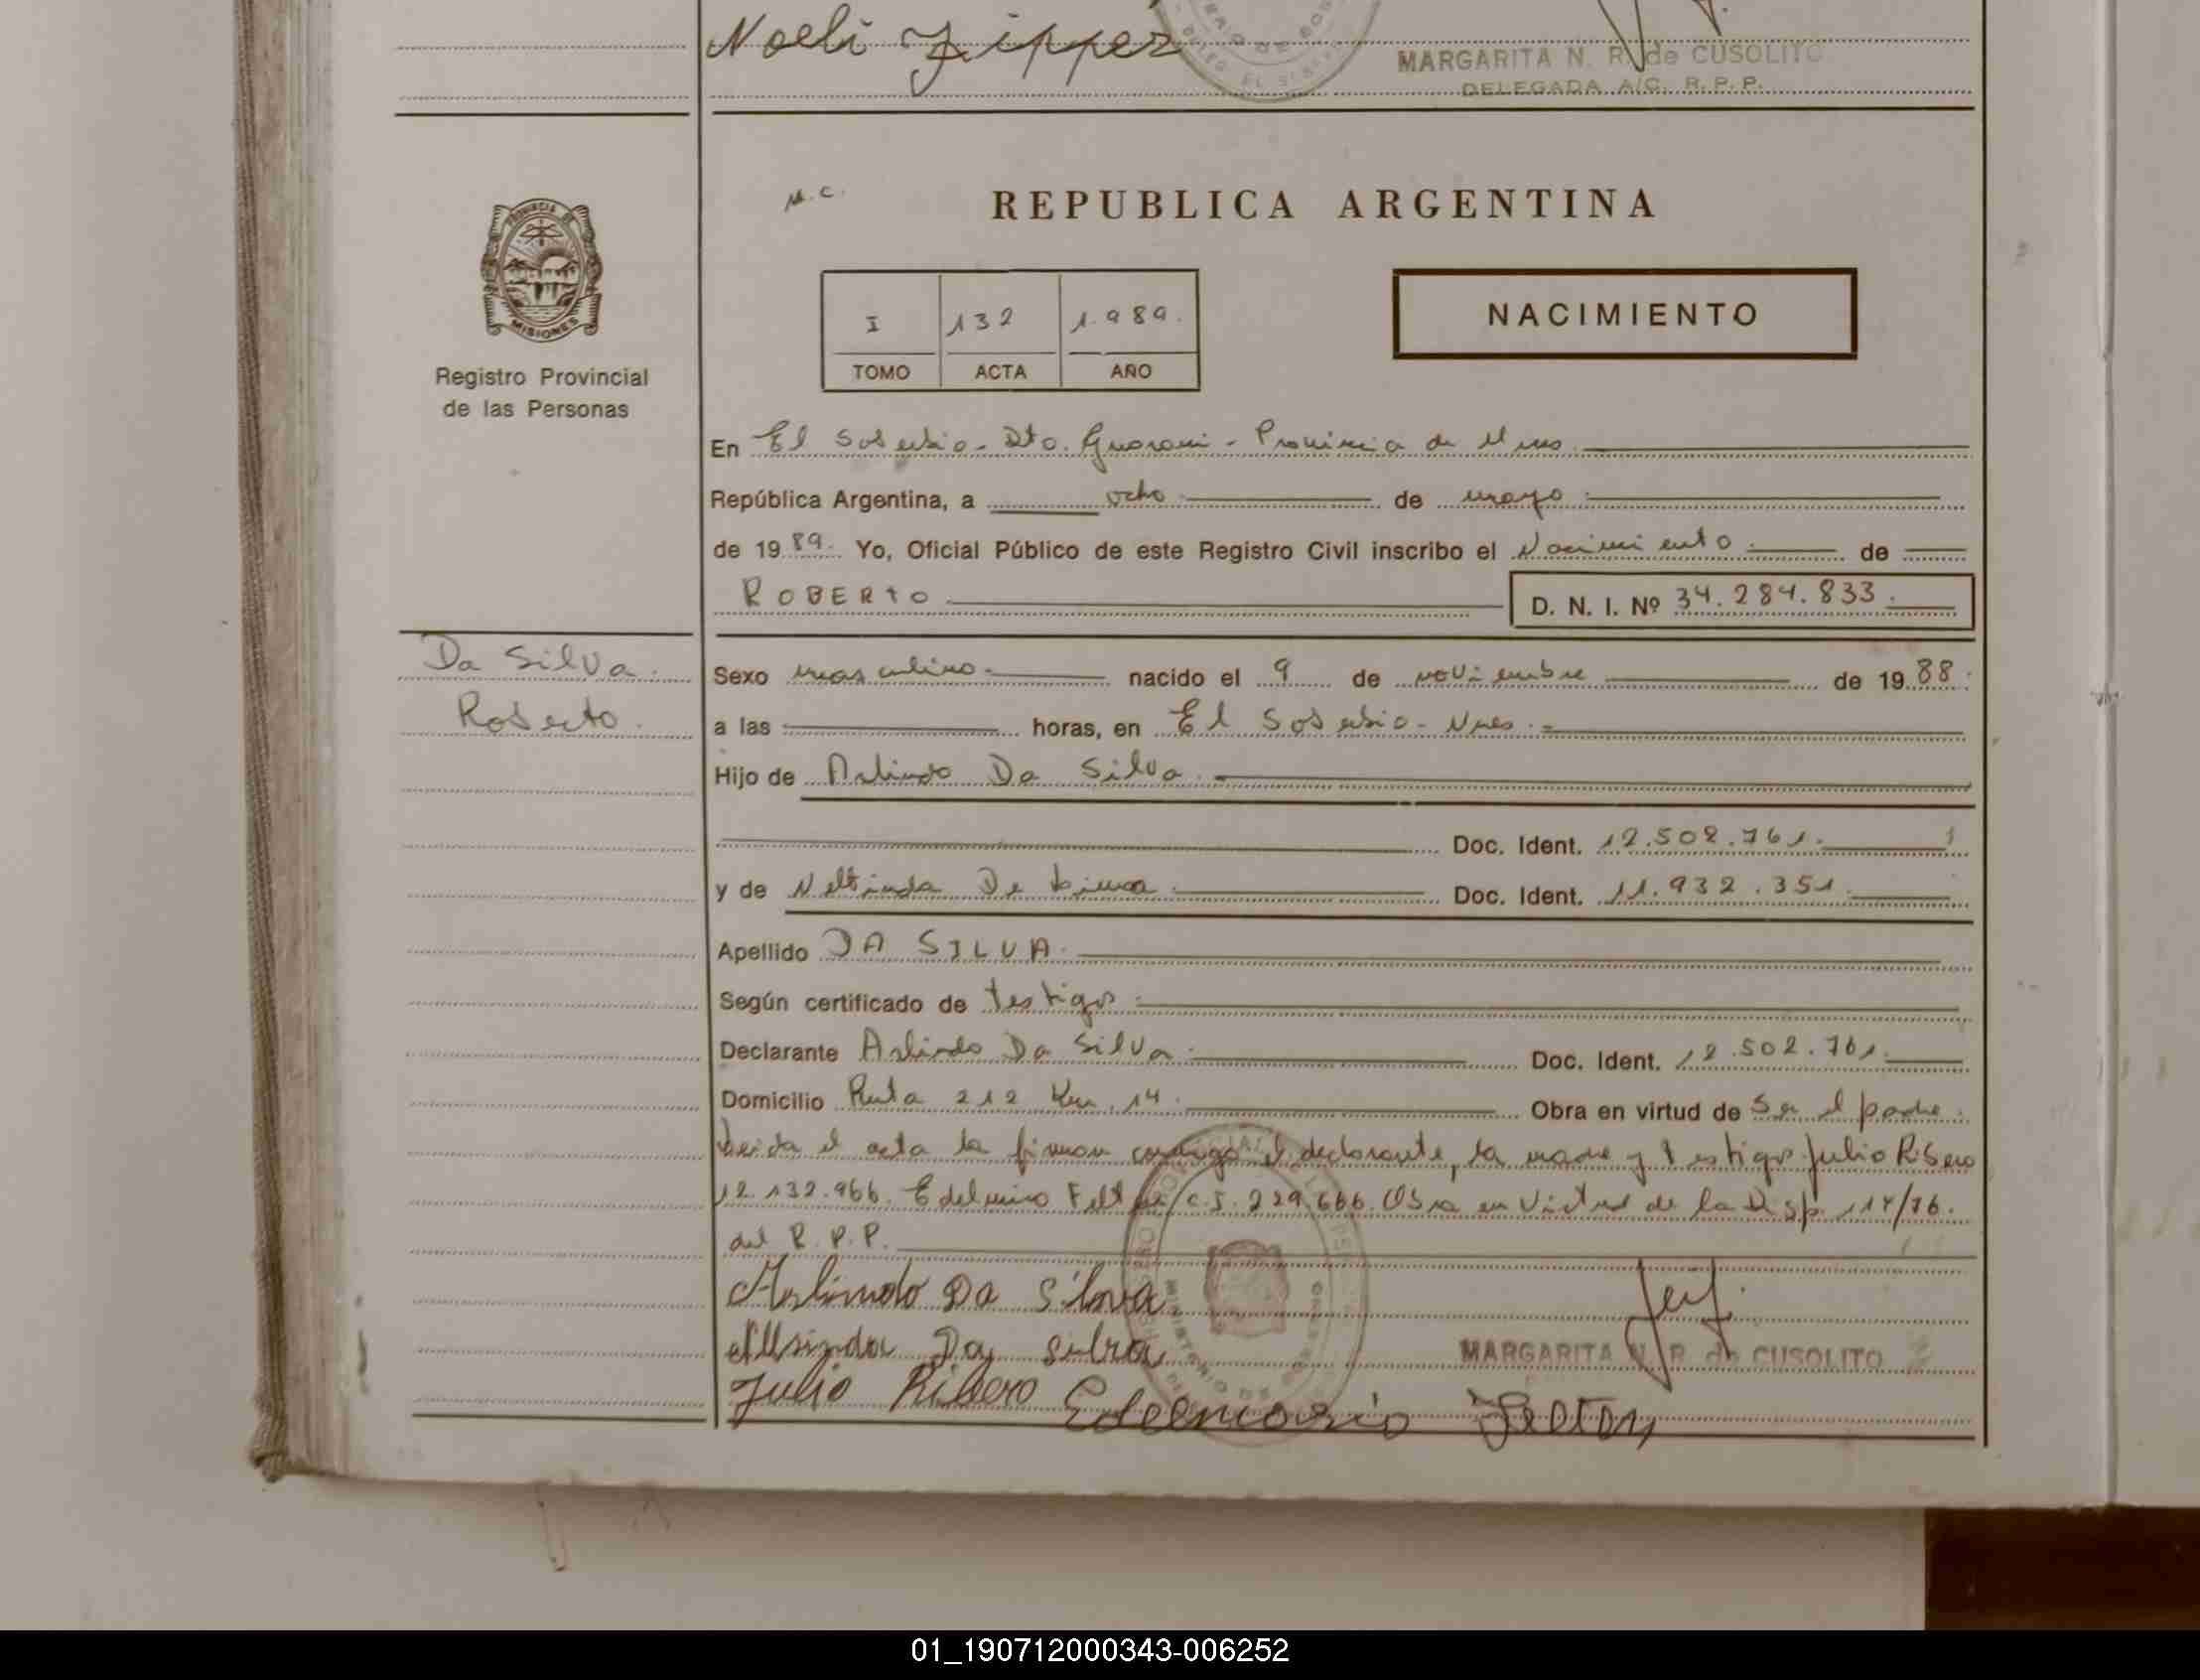 Noeli Zipper
MARGARITA N. R. de CUSOLITO
DELEGADA A/C. R. P. P.
PROVINCIA DE
MISIONES
Registro Provincial
de las Personas
M.C.
REPUBLICA ARGENTINA
I 132 1.989.
TOMO ACTA AÑO
NACIMIENTO
En El Soberbio - Dto. Guarani - Provincia de Mnes.
República Argentina, a ocho de mayo
de 1989. Yo, Oficial Público de este Registro Civil inscribo el Nacimiento de
ROBERTO D. N. I. Nº 34.284.833.
Da Silva.
Roberto.
Sexo masculino nacido el 9 de noviembre de 1988.
a las horas, en El Soberbio - Mnes.
Hijo de Arlindo Da Silva
Doc. Ident. 12.502.761.
y de Nelsinda De Lima Doc. Ident. 11.932.351.
Apellido DA SILVA.
Según certificado de testigos
Declarante Arlindo Da Silva. Doc. Ident. 12.502.761.
Domicilio Ruta 212 Km. 14. Obra en virtud de Ser el padre.
Leida el acta la firman conmigo el declarante, la madre y testigos Julio Ribero
12.132.966. Edelmiro C.I. 229.666. Obra en Virtud de la Disp. 114/76.
del R. P. P.
Arlindo Da Silva
Da Silva
MARGARITA N. R. de CUSOLITO
Julio Ribero
01_190712000343-006252